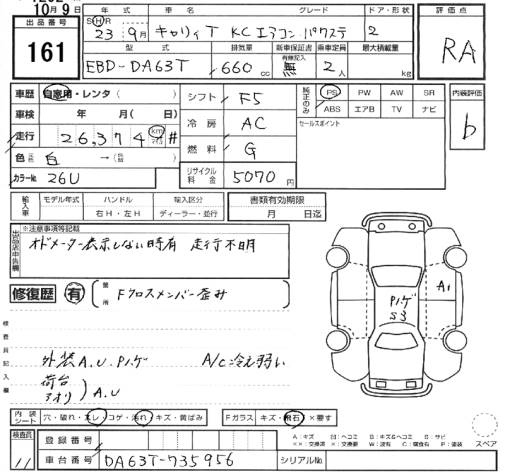 10月9日
出品番号 161
年式 SHR 23年9月
車名 キャリィT KCエアコン・パワステ
グレード
ドア・形状 2
評価点 RA
型式 EBD-DA63T
排気量 660 cc
新車保証書 有無記入 無
乗車定員 2人
最大積載量 kg
車歴 自家用・レンタ( )
車検 年 月( 日)
走行 26,374 km #
色 元色 白 →(色替 )
カラーNo. 26U
シフト F5
冷房 AC
燃料 G
リサイクル料金 5070 円
純正のみ PS PW AW SR
ABS エアB TV ナビ
セールスポイント
内装評価 b
輸入車 モデル年式 ハンドル 右H・左H 輸入区分 ディーラー・並行
書類有効期限 月 日迄
出品店申告欄 ※注意事項等記載
オドメーター表示しない時有 走行不明
修復歴 有 箇所 Fクロスメンバー歪み
検査員記入欄
外装A.U.Pハゲ A/C冷え弱い
荷台
アオリ )A.U
Pハゲ
S3
A1
内装シート 穴・破れ・スレ・コゲ・汚れ・キズ・黄ばみ
Fガラス キズ・飛石・×要す
A:キズ U:ヘコミ B:キズ&ヘコミ S:サビ
××:交換済 ×:要交換 W:波有 C:腐食有 P:塗装
スペア
検査員 11
登録番号
車台番号 DA63T-735956
シリアルNo.